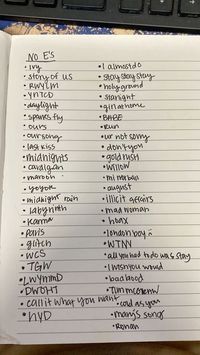 NO E'S
• ivy
• story of us
• RWYLM
• YNTCD
• daylight
• sparks fly
• ours
• our song
• last kiss
• midnights
• cardigan
• maroon
• yoyok
• midnight rain
• labyrinth
• karma
• paris
• glitch
• WCS
• TGW
• LWYMMD
• DWOHT
• call it what you want
• NYD
• I almost do
• stay stay stay
• holy ground
• starlight
• girl at home
• BABE
• Run
• ur not sorry
• don't you
• gold rush
• willow
• mirrorball
• august
• illicit affairs
• mad woman
• hoax
• london boy
• WTNY
• all you had to do was stay
• I wish you would
• bad blood
• Tim mcgraw
• cold as you
• mary's song